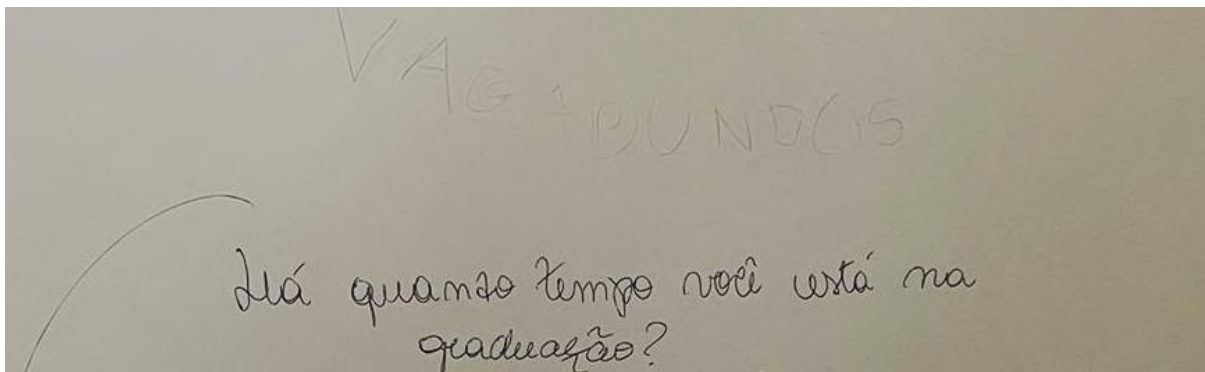 VAGABUNDOS
Há quanto tempo você está na
graduação?